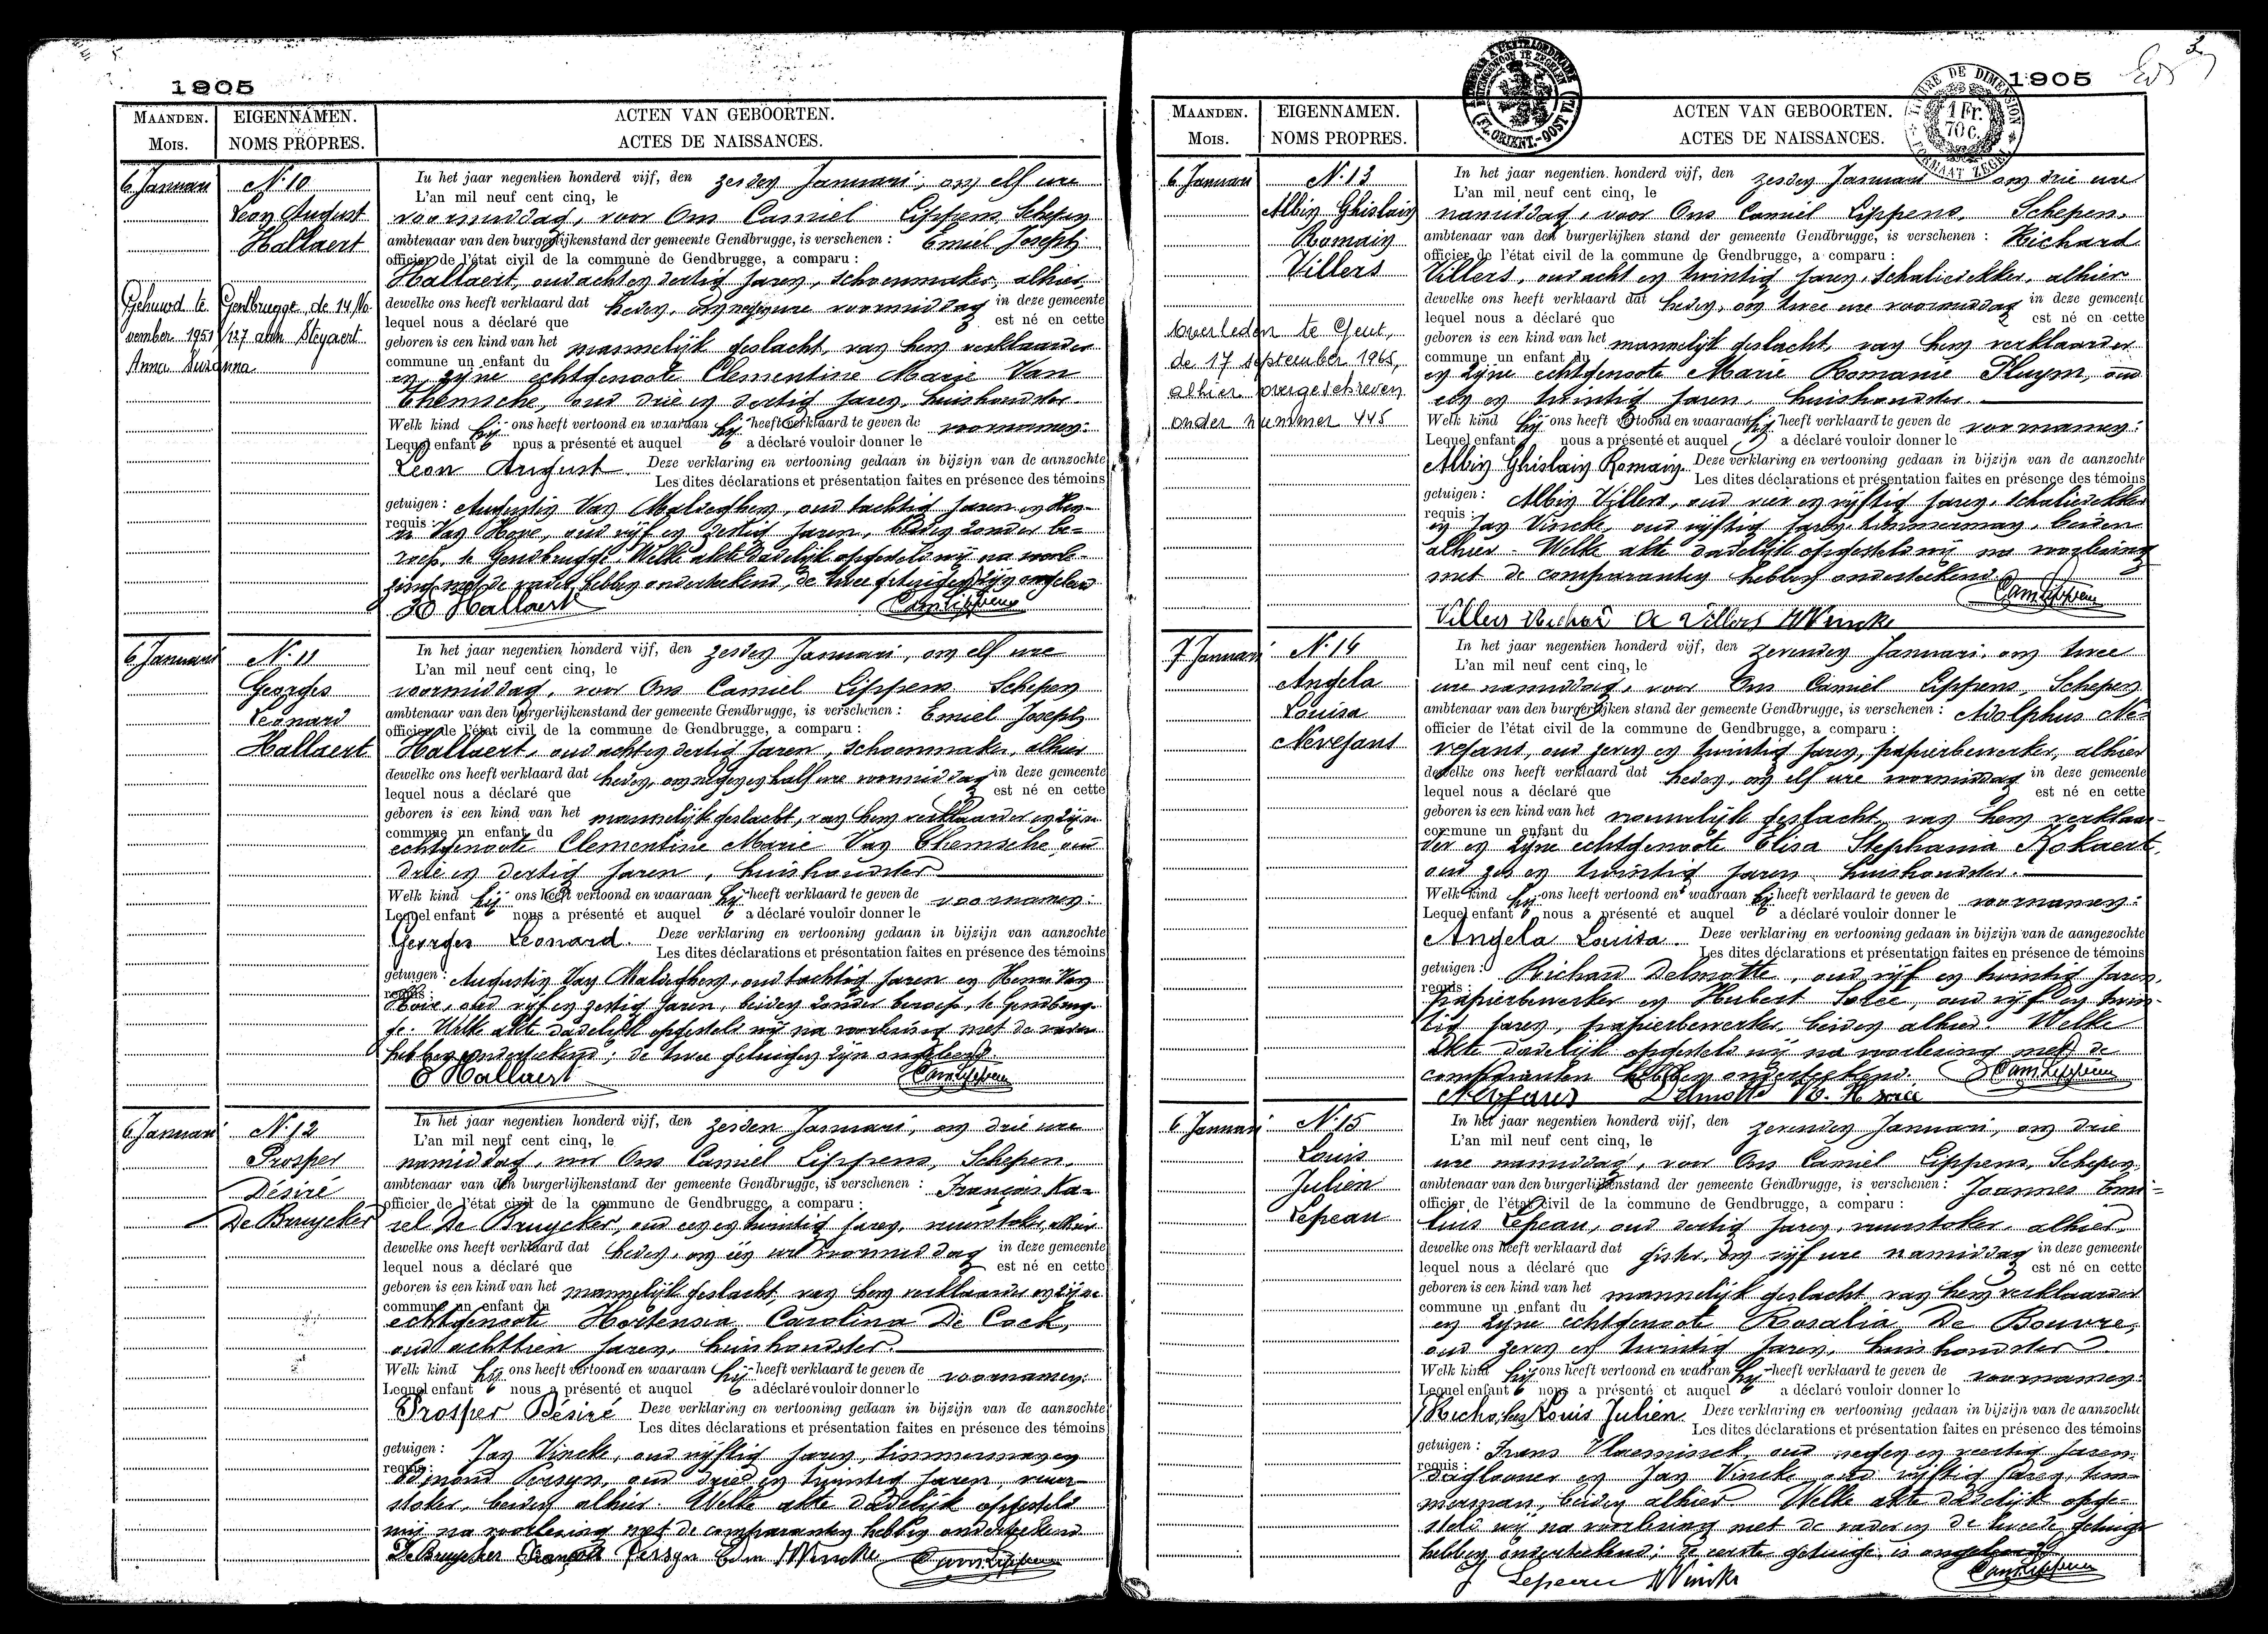 1905
MAANDEN.
Mois.
EIGENNAMEN.
NOMS PROPRES.
ACTEN VAN GEBOORTEN.
ACTES DE NAISSANCES.
6 Januari
N. 10
Leon August
Hallaert
Gehuwd te Gentbrugge, de 14 No-
vember 1951 /127 aan Steyaert
Anna Suzanna
In het jaar negentien honderd vijf, den zesden Januari, om elf ure
L'an mil neuf cent cinq, le
voormiddag, voor Ons Camiel Lippens, Schepen
ambtenaar van den burgerlijkenstand der gemeente Gendbrugge, is verschenen : Emiel Joseph
officier de l'état civil de la commune de Gendbrugge, a comparu :
Hallaert, oud acht en dertig jaren, schoenmaker, alhier,
dewelke ons heeft verklaard dat heden, om negen ure voormiddag in deze gemeente
lequel nous a déclaré que est né en cette
geboren is een kind van het mannelijk geslacht, van hem verklaarder
commune un enfant du
en zijne echtgenoote Clementine Marie Van
Themsche, oud drie en dertig jaren, huishoudster
Welk kind hij ons heeft vertoond en waaraan hij heeft verklaard te geven de voornamen:
Lequel enfant nous a présenté et auquel a déclaré vouloir donner le
Leon August Deze verklaring en vertooning gedaan in bijzijn van de aanzochte
Les dites déclarations et présentation faites en présence des témoins
getuigen : Augustin Van Maldeghem, oud tachtig jaren en Hen-
requis :
ri Van Hove, oud vijf en zestig jaren, beiden zonder be-
roep, te Gendbrugge. Welke akte dadelijk opgesteld wij na voorle-
zing met de vader hebben onderteekend, de twee getuigen zijn ongeleerd
E Hallaert Cam Lippens
6 Januari
N. 11
Georges
Leonard
Hallaert
In het jaar negentien honderd vijf, den zesden Januari, om elf ure
L'an mil neuf cent cinq, le
voormiddag, voor Ons Camiel Lippens Schepen
ambtenaar van den burgerlijkenstand der gemeente Gendbrugge, is verschenen : Emiel Joseph
officier de l'état civil de la commune de Gendbrugge, a comparu :
Hallaert, oud acht en dertig jaren, schoenmaker, alhier
dewelke ons heeft verklaard dat heden, om negen en half ure voormiddag in deze gemeente
lequel nous a déclaré que est né en cette
geboren is een kind van het mannelijk geslacht, van hem verklaarder en zijne
commune un enfant du
echtgenoote Clementine Marie Van Themsche, oud
drie en dertig jaren, huishoudster
Welk kind hij ons heeft vertoond en waaraan hij heeft verklaard te geven de voornamen:
Lequel enfant nous a présenté et auquel a déclaré vouloir donner le
Georges Leonard. Deze verklaring en vertooning gedaan in bijzijn van aanzochte
Les dites déclarations et présentation faites en présence des témoins
getuigen : Augustin Van Maldeghem, oud tachtig jaren en Henri Van
requis :
Hove, oud vijf en zestig jaren, beiden zonder beroep, te Gendbrug-
ge. Welke akte dadelijk opgesteld wij na voorlezing met de vader
hebben onderteekend; de twee getuigen zijn ongeleerd.
E Hallaert Cam Lippens
6 Januari
N. 12
Prosper
Désiré
De Bruycker
In het jaar negentien honderd vijf, den zesden Januari, om drie ure
L'an mil neuf cent cinq, le
namiddag, voor Ons Camiel Lippens, Schepen,
ambtenaar van den burgerlijkenstand der gemeente Gendbrugge, is verschenen : François Ka-
officier de l'état civil de la commune de Gendbrugge, a comparu :
rel De Bruycker, oud een en twintig jaren, vuurstoker, alhier
dewelke ons heeft verklaard dat heden, om één ure voormiddag in deze gemeente
lequel nous a déclaré que est né en cette
geboren is een kind van het mannelijk geslacht, van hem verklaarder en zijne
commune un enfant du
echtgenoote Hortensia Carolina De Cock,
oud achttien jaren, huishoudster.
Welk kind hij ons heeft vertoond en waaraan hij heeft verklaard te geven de voornamen:
Lequel enfant nous a présenté et auquel a déclaré vouloir donner le
Prosper Désiré Deze verklaring en vertooning gedaan in bijzijn van de aanzochte
Les dites déclarations et présentation faites en présence des témoins
getuigen : Jan Vincke, oud vijftig jaren, timmerman en
requis :
Edmond Persyn, oud drie en twintig jaren, vuur-
stoker, beiden alhier. Welke akte dadelijk opgesteld
wij na voorlezing met de comparanten hebben onderteekend
De Bruycker François Persyn Edm Vincke Cam Lippens
1905
MAANDEN.
Mois.
EIGENNAMEN.
NOMS PROPRES.
ACTEN VAN GEBOORTEN.
ACTES DE NAISSANCES.
TIMBRE DE DIMENSION
1 Fr.
70 c.
FORMAAT ZEGEL
6 Januari
N. 13
Albin Ghislain
Romain
Villers
Overleden te Gent,
de 17 september 1965,
alhier overgeschreven
onder nummer 445
In het jaar negentien honderd vijf, den zesden Januari om drie ure
L'an mil neuf cent cinq, le
namiddag, voor Ons Camiel Lippens, Schepen,
ambtenaar van den burgerlijken stand der gemeente Gendbrugge, is verschenen : Richard
officier de l'état civil de la commune de Gendbrugge, a comparu :
Villers, oud acht en twintig jaren, schaliedekker, alhier
dewelke ons heeft verklaard dat heden, om twee ure voormiddag in deze gemeente
lequel nous a déclaré que est né en cette
geboren is een kind van het mannelijk geslacht, van hem verklaarder
commune un enfant du
en zijne echtgenoote Marie Romanie Pluym, oud
een en twintig jaren, huishoudster.
Welk kind hij ons heeft vertoond en waaraan hij heeft verklaard te geven de voornamen:
Lequel enfant nous a présenté et auquel a déclaré vouloir donner le
Albin Ghislain Romain. Deze verklaring en vertooning gedaan in bijzijn van de aanzochte
Les dites déclarations et présentation faites en présence des témoins
getuigen : Albin Villers, oud vier en vijftig jaren, schaliedekker
requis :
en Jan Vincke, oud vijftig jaren, timmerman, beiden
alhier. Welke akte dadelijk opgesteld wij na voorlezing
met de comparanten hebben onderteekend
Cam Lippens
Villers Richard A Villers Vincke
7 Januari
N. 14
Angela
Louisa
Nevejans
In het jaar negentien honderd vijf, den zevenden Januari, om twee
L'an mil neuf cent cinq, le
ure namiddag, voor Ons Camiel Lippens, Schepen
ambtenaar van den burgerlijken stand der gemeente Gendbrugge, is verschenen : Adolphus Ne-
officier de l'état civil de la commune de Gendbrugge, a comparu :
vejans, oud zeven en twintig jaren, papierbewerker, alhier
dewelke ons heeft verklaard dat heden, om elf ure voormiddag in deze gemeente
lequel nous a déclaré que est né en cette
geboren is een kind van het vrouwelijk geslacht, van hem verklaar-
commune un enfant du
der en zijne echtgenoote Elisa Stephania Kokaert,
oud zes en twintig jaren huishoudster.
Welk kind hij ons heeft vertoond en waaraan hij heeft verklaard te geven de voornamen:
Lequel enfant nous a présenté et auquel a déclaré vouloir donner le
Angela Louisa. Deze verklaring en vertooning gedaan in bijzijn van de aangezochte
Les dites déclarations et présentation faites en présence de témoins
getuigen : Richard Delmotte, oud vijf en twintig jaren,
requis :
papierbewerker en Hubert oud vijf en twin-
tig jaren, papierbewerker, beiden alhier. Welke
akte dadelijk opgesteld wij na voorlezing met de
comparanten hebben onderteekend. Cam Lippens
Nevejans Delmotte
6 Januari
N. 15
Louis
Julien
Lepeau
In het jaar negentien honderd vijf, den zevenden Januari, om drie
L'an mil neuf cent cinq, le
ure namiddag, voor Ons Camiel Lippens, Schepen,
ambtenaar van den burgerlijkenstand der gemeente Gendbrugge, is verschenen: Joannes Emi-
officier de l'état civil de la commune de Gendbrugge, a comparu :
lius Lepeau, oud dertig jaren, vuurstoker, alhier,
dewelke ons heeft verklaard dat gister, om vijf ure namiddag in deze gemeente
lequel nous a déclaré que est né en cette
geboren is een kind van het mannelijk geslacht van hem verklaarder
commune un enfant du
en zijne echtgenoote Rosalia De Bouvre,
oud zeven en twintig jaren, huishoudster.
Welk kind hij ons heeft vertoond en waaran hij heeft verklaard te geven de voornamen:
Lequel enfant nous a présenté et auquel a déclaré vouloir donner le
Louis Julien Deze verklaring en vertooning gedaan in bijzijn van de aanzochte
Les dites déclarations et présentation faites en présence des témoins
getuigen : Frans Vlaeminck, oud negen en veertig jaren,
requis :
daglooner en Jan Vincke oud vijftig jaren, tim-
merman, beiden alhier Welke akte dadelijk opge-
steld wij na voorlezing met de vader en de tweede getuige
hebben onderteekend; de eerste getuige is ongeleerd
Lepeau Vincke Cam Lippens